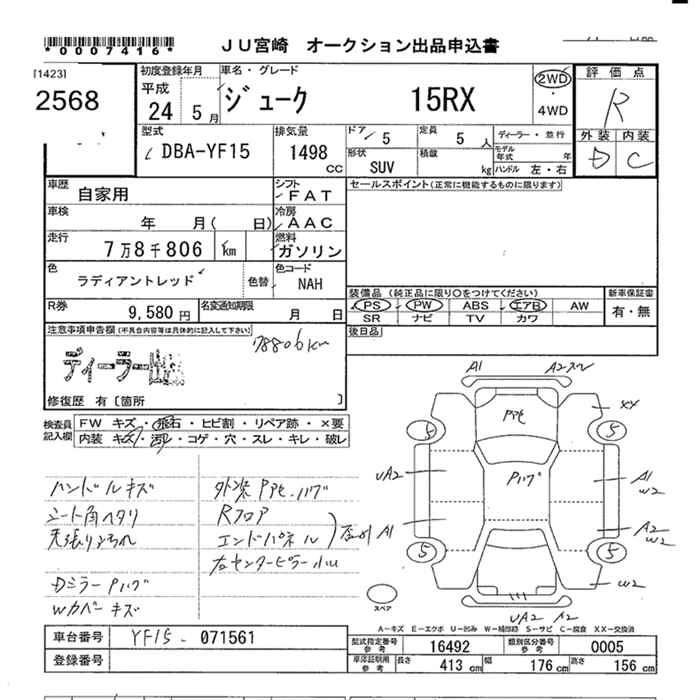 *0007416*
JU宮崎 オークション出品申込書
[1423]
2568
初度登録年月
平成
24 5月
車名・グレード
ジューク 15RX
2WD
・
4WD
評価点
R
外装 内装
D C
型式
DBA-YF15
排気量
1498 CC
ドア 5
定員 5 人
形状 SUV
積載 kg
ディーラー・並行
モデル年式 年
ハンドル 左・右
車歴
自家用
シフト
FAT
セールスポイント(正常に機能するものに限ります)
車検
年 月( 日)
冷房
AAC
走行
7万8千806 km
燃料
ガソリン
色
ラディアントレッド
色替
色コード
NAH
装備品 (純正品に限り○をつけてください)
PS PW ABS エアB AW
SR ナビ TV カワ
新車保証書
有・無
R券
9,580円
名変通知期限
月 日
後日品
注意事項申告欄(不具合内容等は具体的に記入して下さい)
78806km
ディーラー出品
修復歴 有〔箇所 〕
検査員記入欄
FW キズ・飛石・ヒビ割・リペア跡・×要
内装 キズ・汚れ・コゲ・穴・スレ・キレ・破レ
ハンドルキズ
シート角ヘタリ
天張りよごれ
Dミラー Pハゲ
Wカバーキズ
外装 Pハゲ
Rフロア
エンドパネル
右センターピラー小U
A1 A2
XX
5 5
UA2
A1
W2
A1
A2
W2
5 5
W2
UA2 A2
Pハゲ
スペア
A-キズ E-エクボ U-凹み W-補修跡 S-サビ C-腐食 XX-交換済
車台番号 YF15 - 071561
登録番号
型式指定番号 参考 16492
類別区分番号 参考 0005
車庫証明用 参考 長さ 413 cm 幅 176 cm 高さ 156 cm